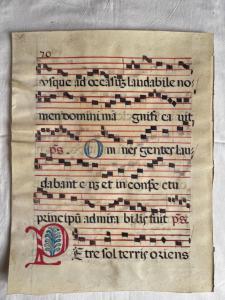 70
vsque ad occasuʒ laudabile no
men domini ma gnifica uit
ps Om nes gentes lau
dabant eius et in conspe ctu
principū admira bilis fuit ps
Petre sol terris oriens